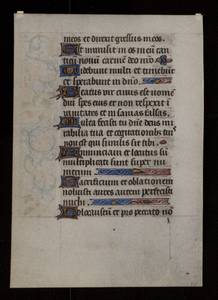 meos et direxit gressus meos.
Et immisit in os meū can
ticū novū carmē deo nr̄o
Videbunt multi et timebūt
et sperabunt in dn̄o.
Beatus vir cuius est nomē
dn̄i spes eius et non respexit ī
vanitates et in sanias falsas
Multa fecisti tu dn̄e deus
rabilia tua et cogitationib; tuis
non est qui similis sit tibi.
Annunciavi et locutus sū
multiplicati sunt super nu
merum.
Sacrificium et oblationem
noluisti aures autem perfecisti
michi.
Holocaustū et pro peccato nō